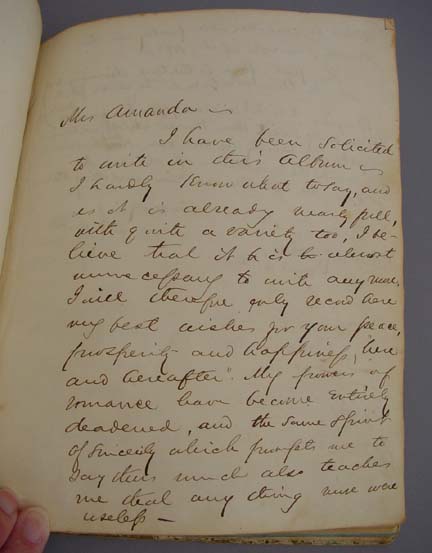 Miss Amanda —
I have been solicited
to write in this Album —
I hardly know what to say, and
as it is already nearly full,
with quite a variety too, I be-
lieve that it is almost
unnecessary to write any more.
I will therefore only record here
my best wishes for your peace,
prosperity and happiness, "here
and hereafter". My powers of
romance have become entirely
deadened, and the same spirit
of sincerity which prompts me to
say this much also teaches
me that any thing more were
useless —